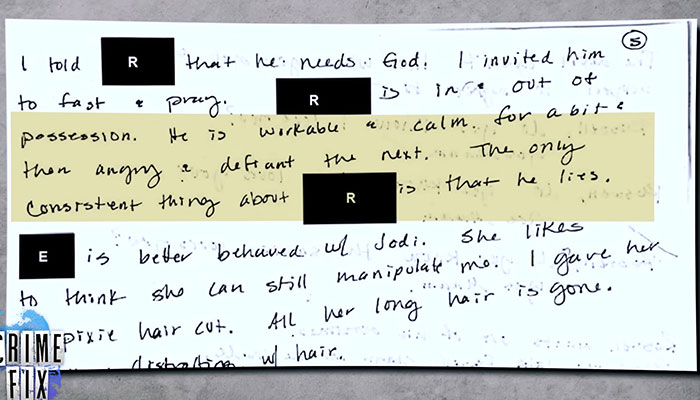 5
I told R that he needs God. I invited him
to fast & pray. R is in & out of
possession. He is workable & calm for a bit &
then angry & defiant the next. The only
consistent thing about R is that he lies.
E is better behaved w/ Jodi. She likes
to think she can still manipulate me. I gave her
pixie hair cut. All her long hair is gone.
distraction w/ hair.
CRIME
FIX